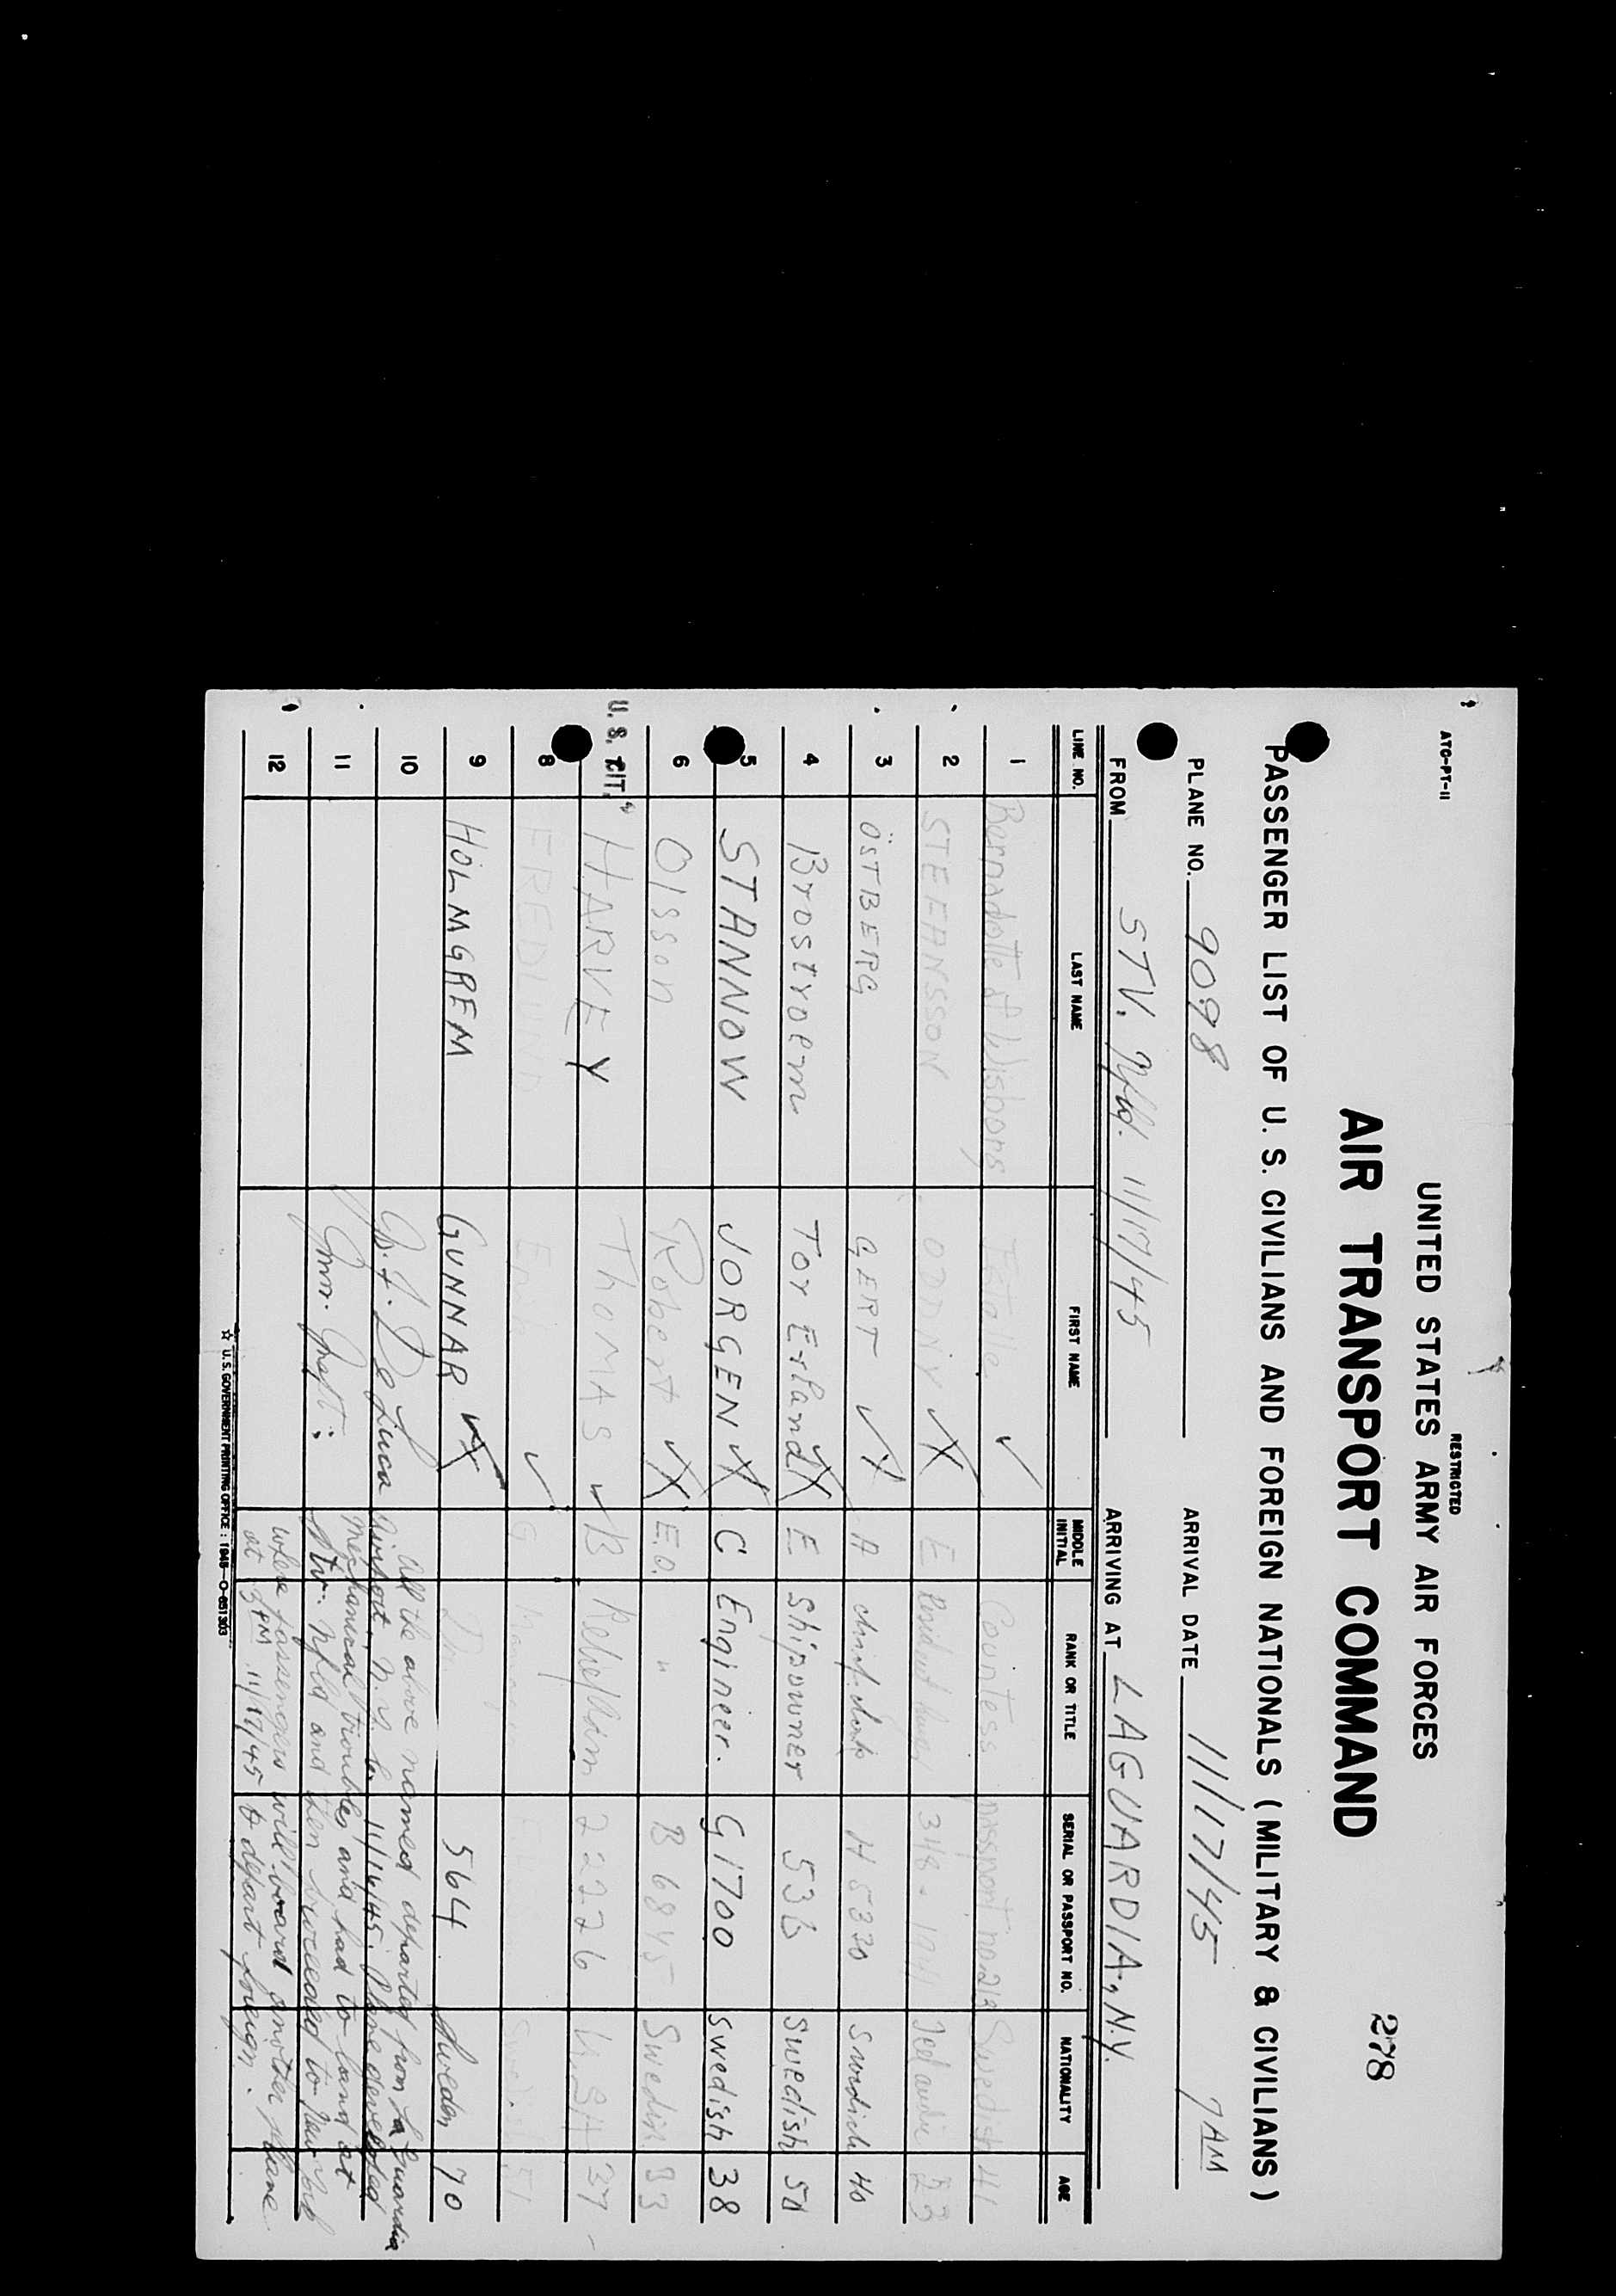 ATC-PT-11
RESTRICTED
UNITED STATES ARMY AIR FORCES
AIR TRANSPORT COMMAND
278
PASSENGER LIST OF U. S. CIVILIANS AND FOREIGN NATIONALS ( MILITARY & CIVILIANS )
PLANE NO. 9098 ARRIVAL DATE 11/17/45 7 AM
FROM STV. Nfld. 11/17/45 ARRIVING AT LAGUARDIA, N.Y.
LINE NO. LAST NAME FIRST NAME MIDDLE INITIAL RANK OR TITLE SERIAL OR PASSPORT NO. NATIONALITY AGE
1 Bernadotte of Wisborg Estelle ✓ Countess passport no 212 Swedish 41
2 STEFANSSON ODDNY ✓ X E 348 - 1941 23
3 ÖSTBERG GERT ✓ X A H 5330 Swedish 40
4 Brostroem Tor Erland X E Shipowner 536 Swedish 50
5 STANNOW JORGEN X C Engineer. G1700 Swedish 38
6 Olsson Robert ✓ X E.O. " B 6845 Swedish 33
U. S. CIT. " HARVEY THOMAS ✓ B Relief Adm 22226 U.SA 37
8 FREDLUND Erik ✓ G Manager 51
9 HOLMGREM GUNNAR ✓ X Dr 564 Sweden 70
10 G. F. De Luca All the above named departed from La Guardia
Airport, N.Y. to 11/16/45. Plane developed
11 Imm. Insp't: mechanical troubles and had to land at
Stv. Nfld and then proceeded to New York
12 where passengers will board another plane
at 3 PM 11/17/45 to depart foreign.
☆ U. S. GOVERNMENT PRINTING OFFICE : 1945—O-651303